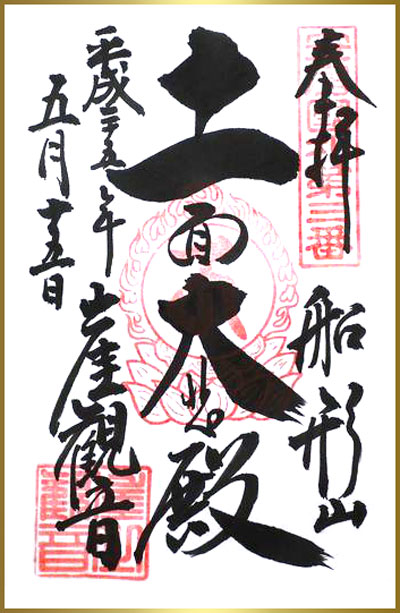 奉拝
船形山
十一面大悲殿
平成二十五年
五月十五日
崖觀音
第三番